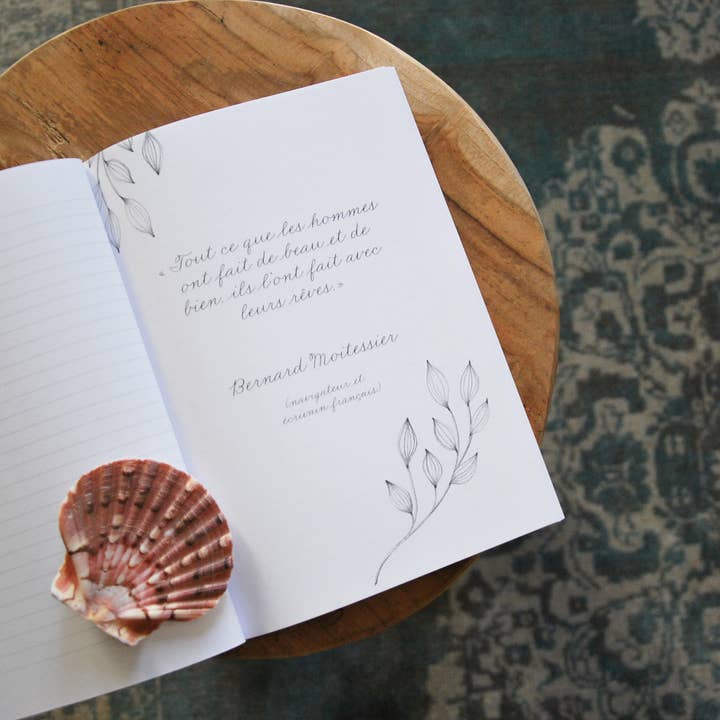 « Tout ce que les hommes
ont fait de beau et de
bien, ils l'ont fait avec
leurs rêves. »
Bernard Moitessier
(navigateur et
écrivain français)